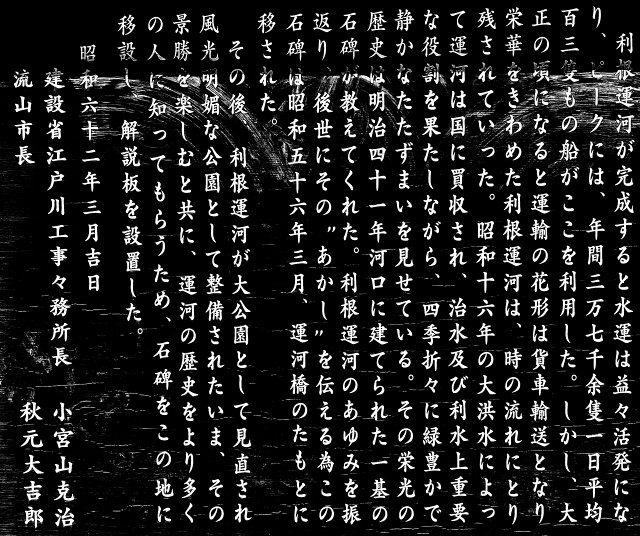 利根運河が完成すると水運は益々活発にな
り、ピークには、年間三万七千余隻一日平均
百三隻もの船がここを利用した。しかし、大
正の頃になると運輸の花形は貨車輸送となり
栄華をきわめた利根運河は、時の流れにとり
残されていった。昭和十六年の大洪水によっ
て運河は国に買収され、治水及び利水上重要
な役割を果たしながら、四季折々に緑豊かで
静かなたたずまいを見せている。その栄光の
歴史は明治四十一年河口に建てられた一基の
石碑が教えてくれた。利根運河のあゆみを振
返り、後世にその〃あかし〃を伝える為この
石碑は昭和五十六年三月、運河橋のたもとに
移された。
その後、利根運河が大公園として見直され
風光明媚な公園として整備されたいま、その
景勝を楽しむと共に、運河の歴史をより多く
の人に知ってもらうため、石碑をこの地に
移設し、解説板を設置した。
昭和六十二年三月吉日
建設省江戸川工事々務所長 小宮山克治
流山市長 秋元大吉郎